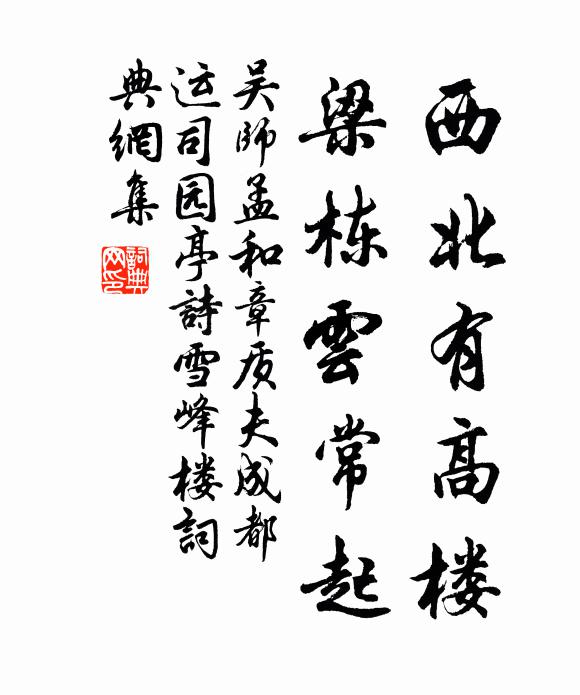 西北有高楼
梁栋雲常起
吴師孟和章质夫成都
运司园亭詩雪峰楼詞
典網集
詞典网印